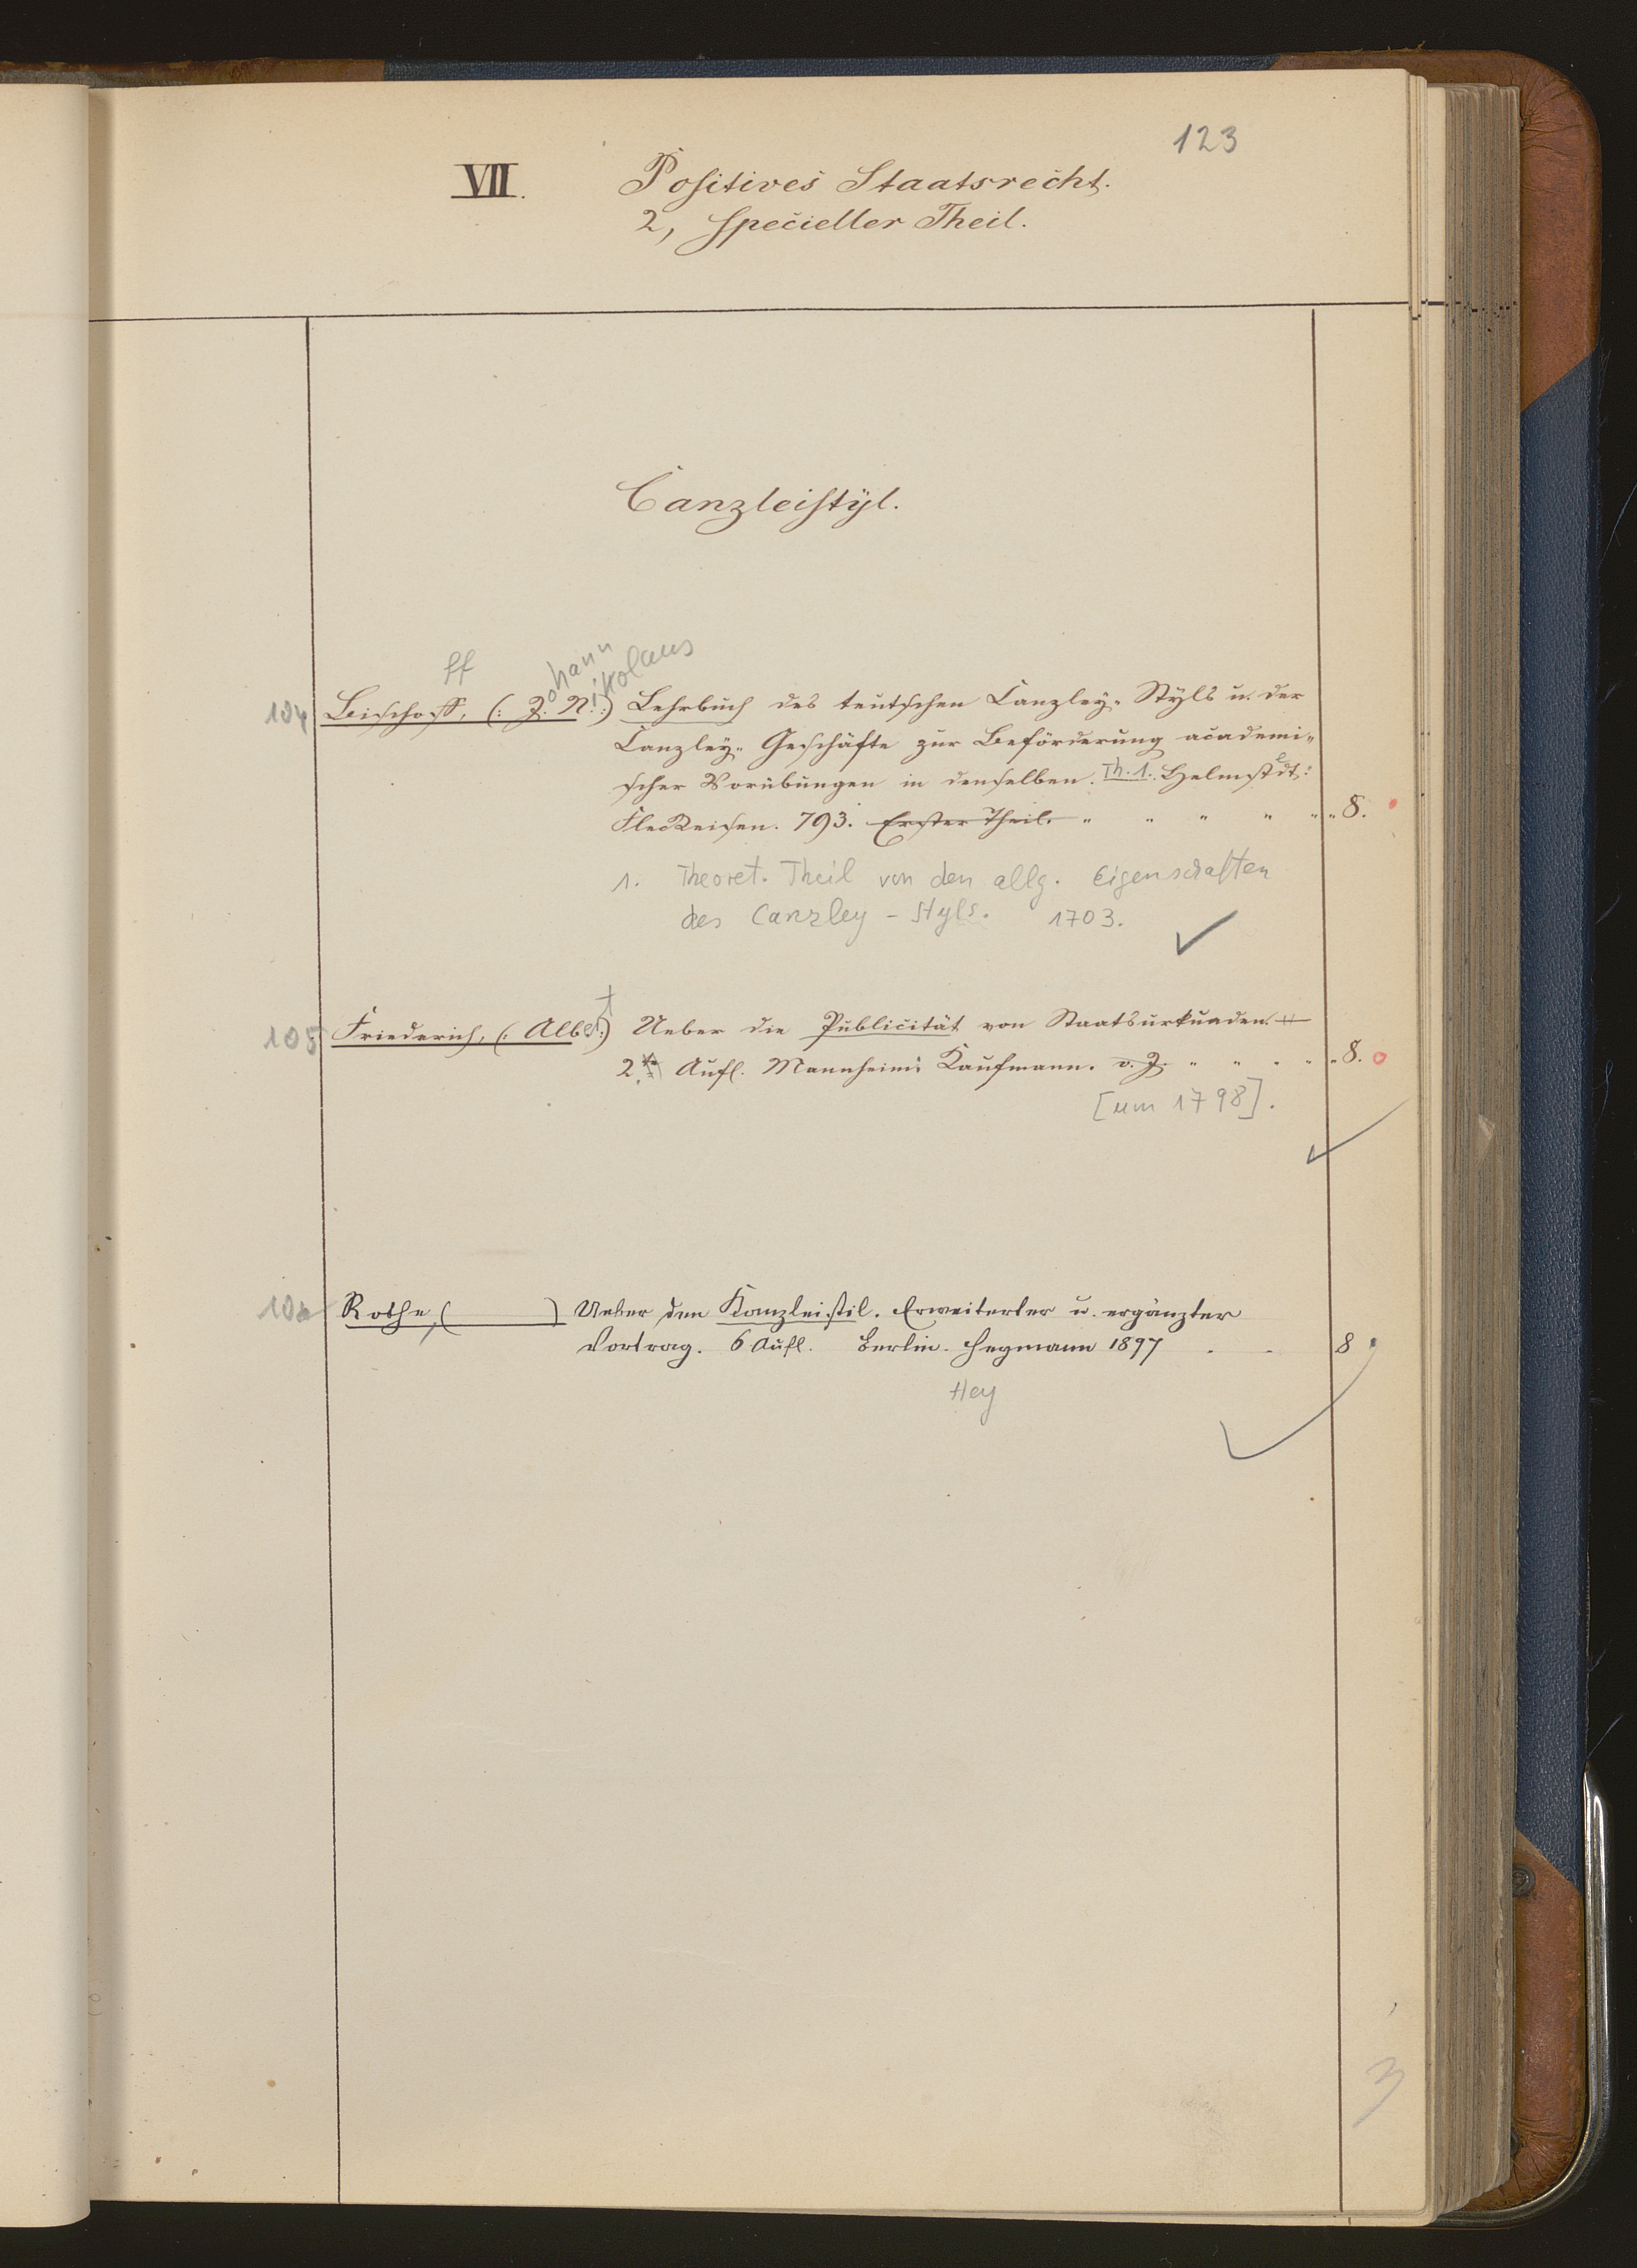 123
VII. Positives Staatsrecht.
2, Specieller Theil.
Canzleistyl.
ff ohann ikolaus
104 Bischoff, (: J. N. :) Lehrbuch des teutschen Canzley-Styls u. der
Canzley-Geschäfte zur Beförderung academi-
scher Vorübungen in denselben. Th. 1. Helmstedt:
Fleckeisen. 793. Erster Theil. " " " " " " 8.
1. Theoret. Theil von den allg. Eigenschaften
des Canzley-Styls. 1703.
105 Friederich, (: Albert :) Ueber die Publicität von Staatsurkunden.
2te Aufl. Mannheim: Kaufmann. o. J. " " " " " 8.
[um 1798].
Rothe, ( ) Ueber den Kanzleistil. Erweiterter u. ergänzter
Vortrag. 6 Aufl. Berlin. Hegmann 1897 . . 8
Hey
3